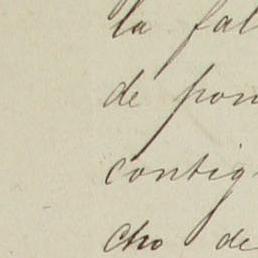 la fal
de pon
contig
cho de